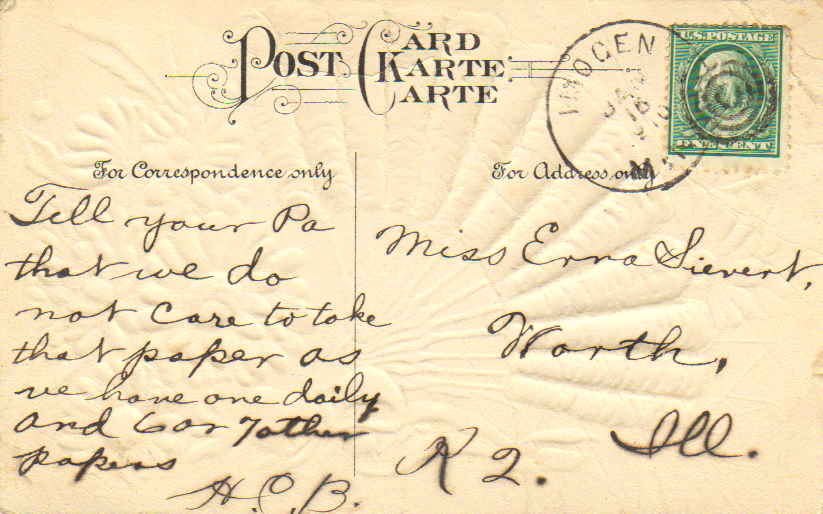 POST CARD
KARTE
CARTE
IMOGEN
JAN
18
U.S. POSTAGE
ONE CENT
For Correspondence only
For Address only
Tell your Pa
that we do
not care to take
that paper as
we have one daily
and 6 or 7 other
papers
H.C.B.
Miss Erna Sievert,
Worth,
Ill.
R 2.